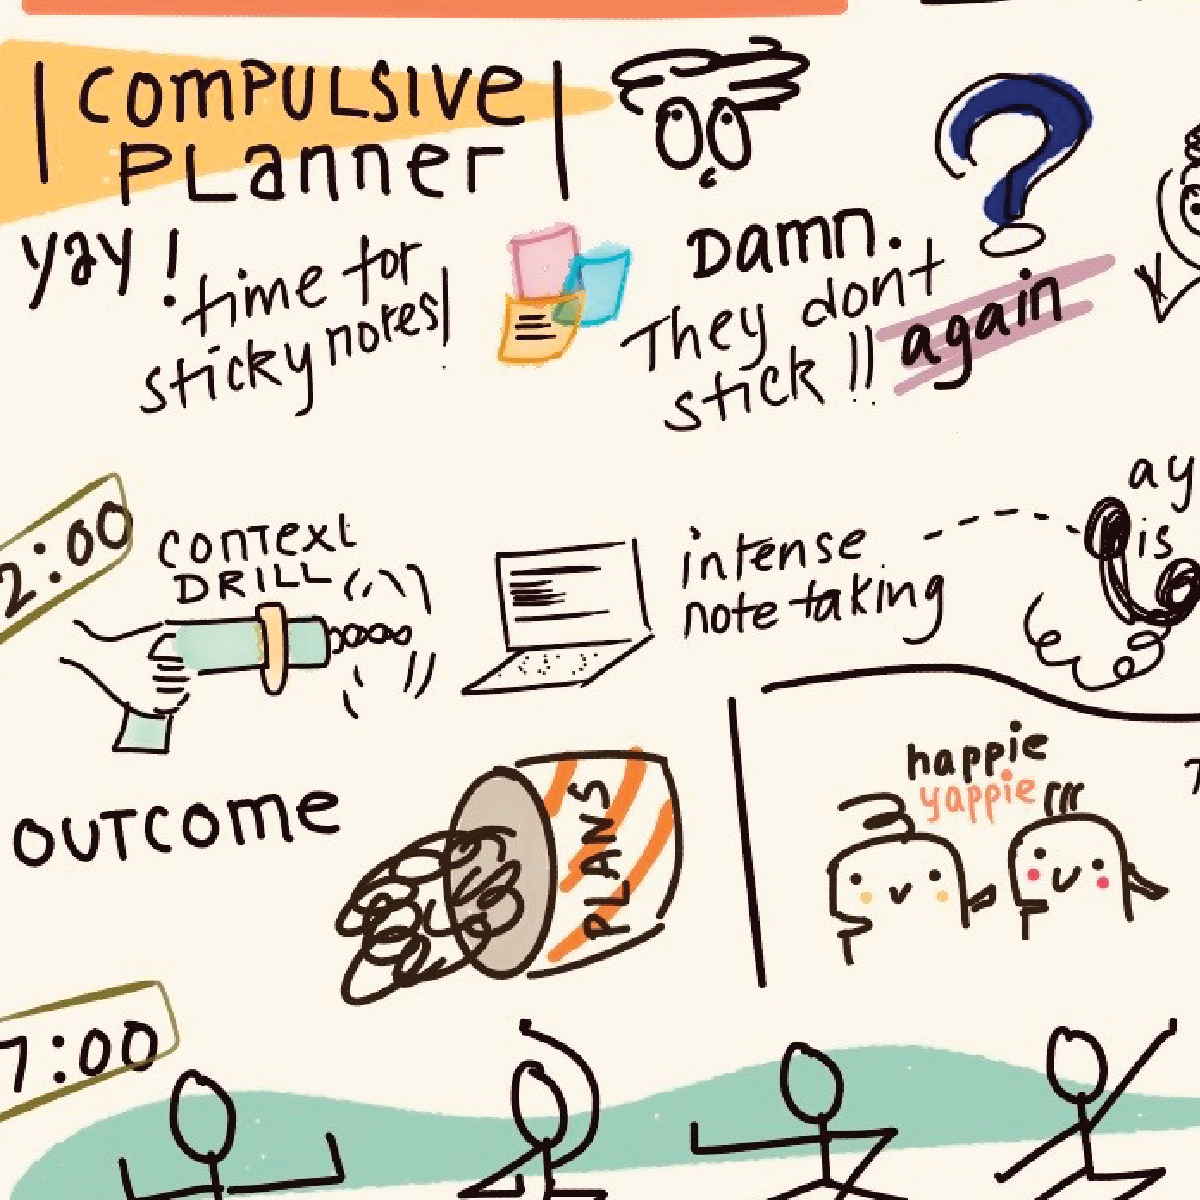 COMPULSIVE
PLanner
yay!
time for
sticky notes!
Damn.
They dont
stick!! again
?
2:00
context
DRILL
intense
note taking
ay
is
OUTCOME
PLANS
happie
yappie
7:00